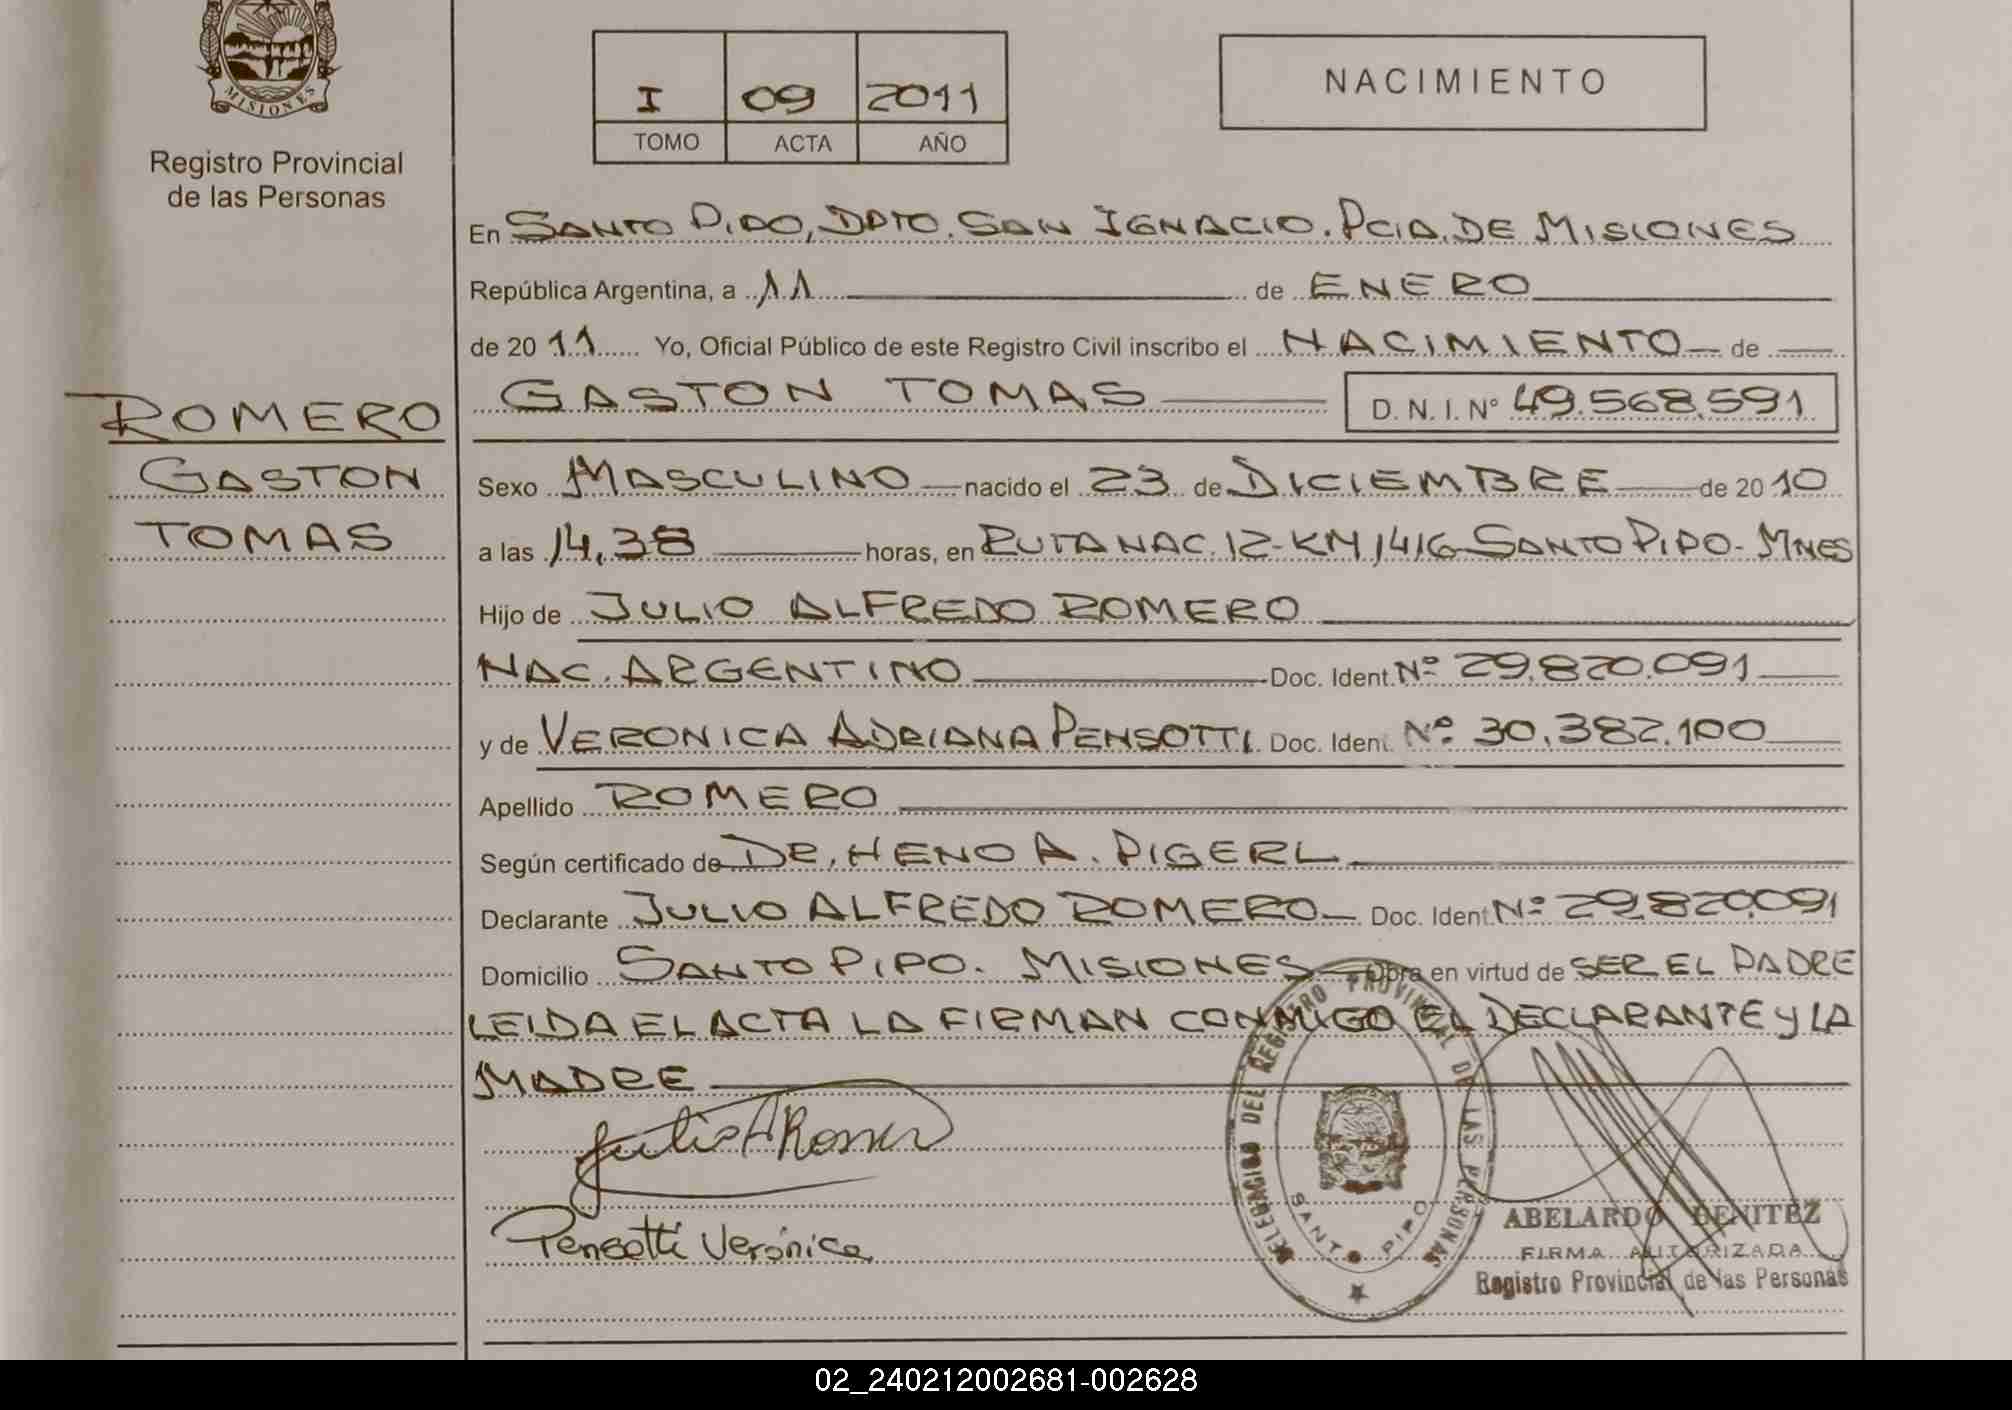 MISIONES
Registro Provincial
de las Personas
I 09 2011
TOMO ACTA AÑO
NACIMIENTO
En SANTO PIPO, DPTO. SAN IGNACIO. PCIA. DE MISIONES
República Argentina, a 11 de ENERO
de 2011 Yo, Oficial Público de este Registro Civil inscribo el NACIMIENTO de
GASTON TOMAS D. N. I. Nº 49.568.591
ROMERO
GASTON
TOMAS
Sexo MASCULINO nacido el 23 de DICIEMBRE de 2010
a las 14,38 horas, en RUTA NAC. 12-KM 1416 SANTO PIPO- MNES
Hijo de JULIO ALFREDO ROMERO
NAC. ARGENTINO Doc. Ident. Nº 29.820.091
y de VERONICA ADRIANA PENSOTTI Doc. Ident. Nº 30.382.100
Apellido ROMERO
Según certificado de DR. HENO A. PIGERL
Declarante JULIO ALFREDO ROMERO Doc. Ident. Nº 29.820.091
Domicilio SANTO PIPO. MISIONES Obra en virtud de SER EL PADRE
LEIDA EL ACTA LA FIRMAN CONMIGO EL DECLARANTE y LA
MADRE
Julio A Romero
Pensotti Verónica
DELEGACION DEL REGISTRO PROVINCIAL DE LAS PERSONAS
SANTO PIPO
ABELARDO BENITEZ
FIRMA AUTORIZADA
Registro Provincial de las Personas
02_240212002681-002628